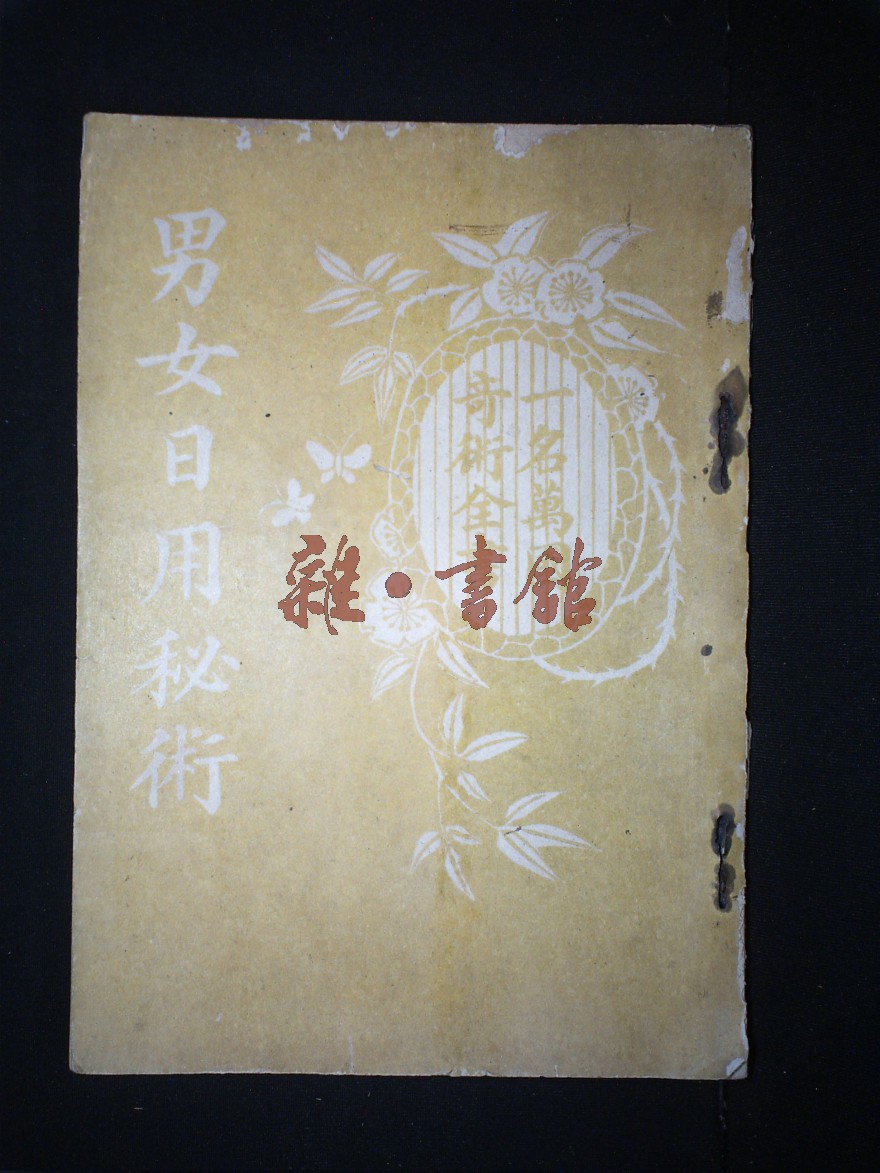 男女日用秘術
一名萬用
奇術全
雜·書館